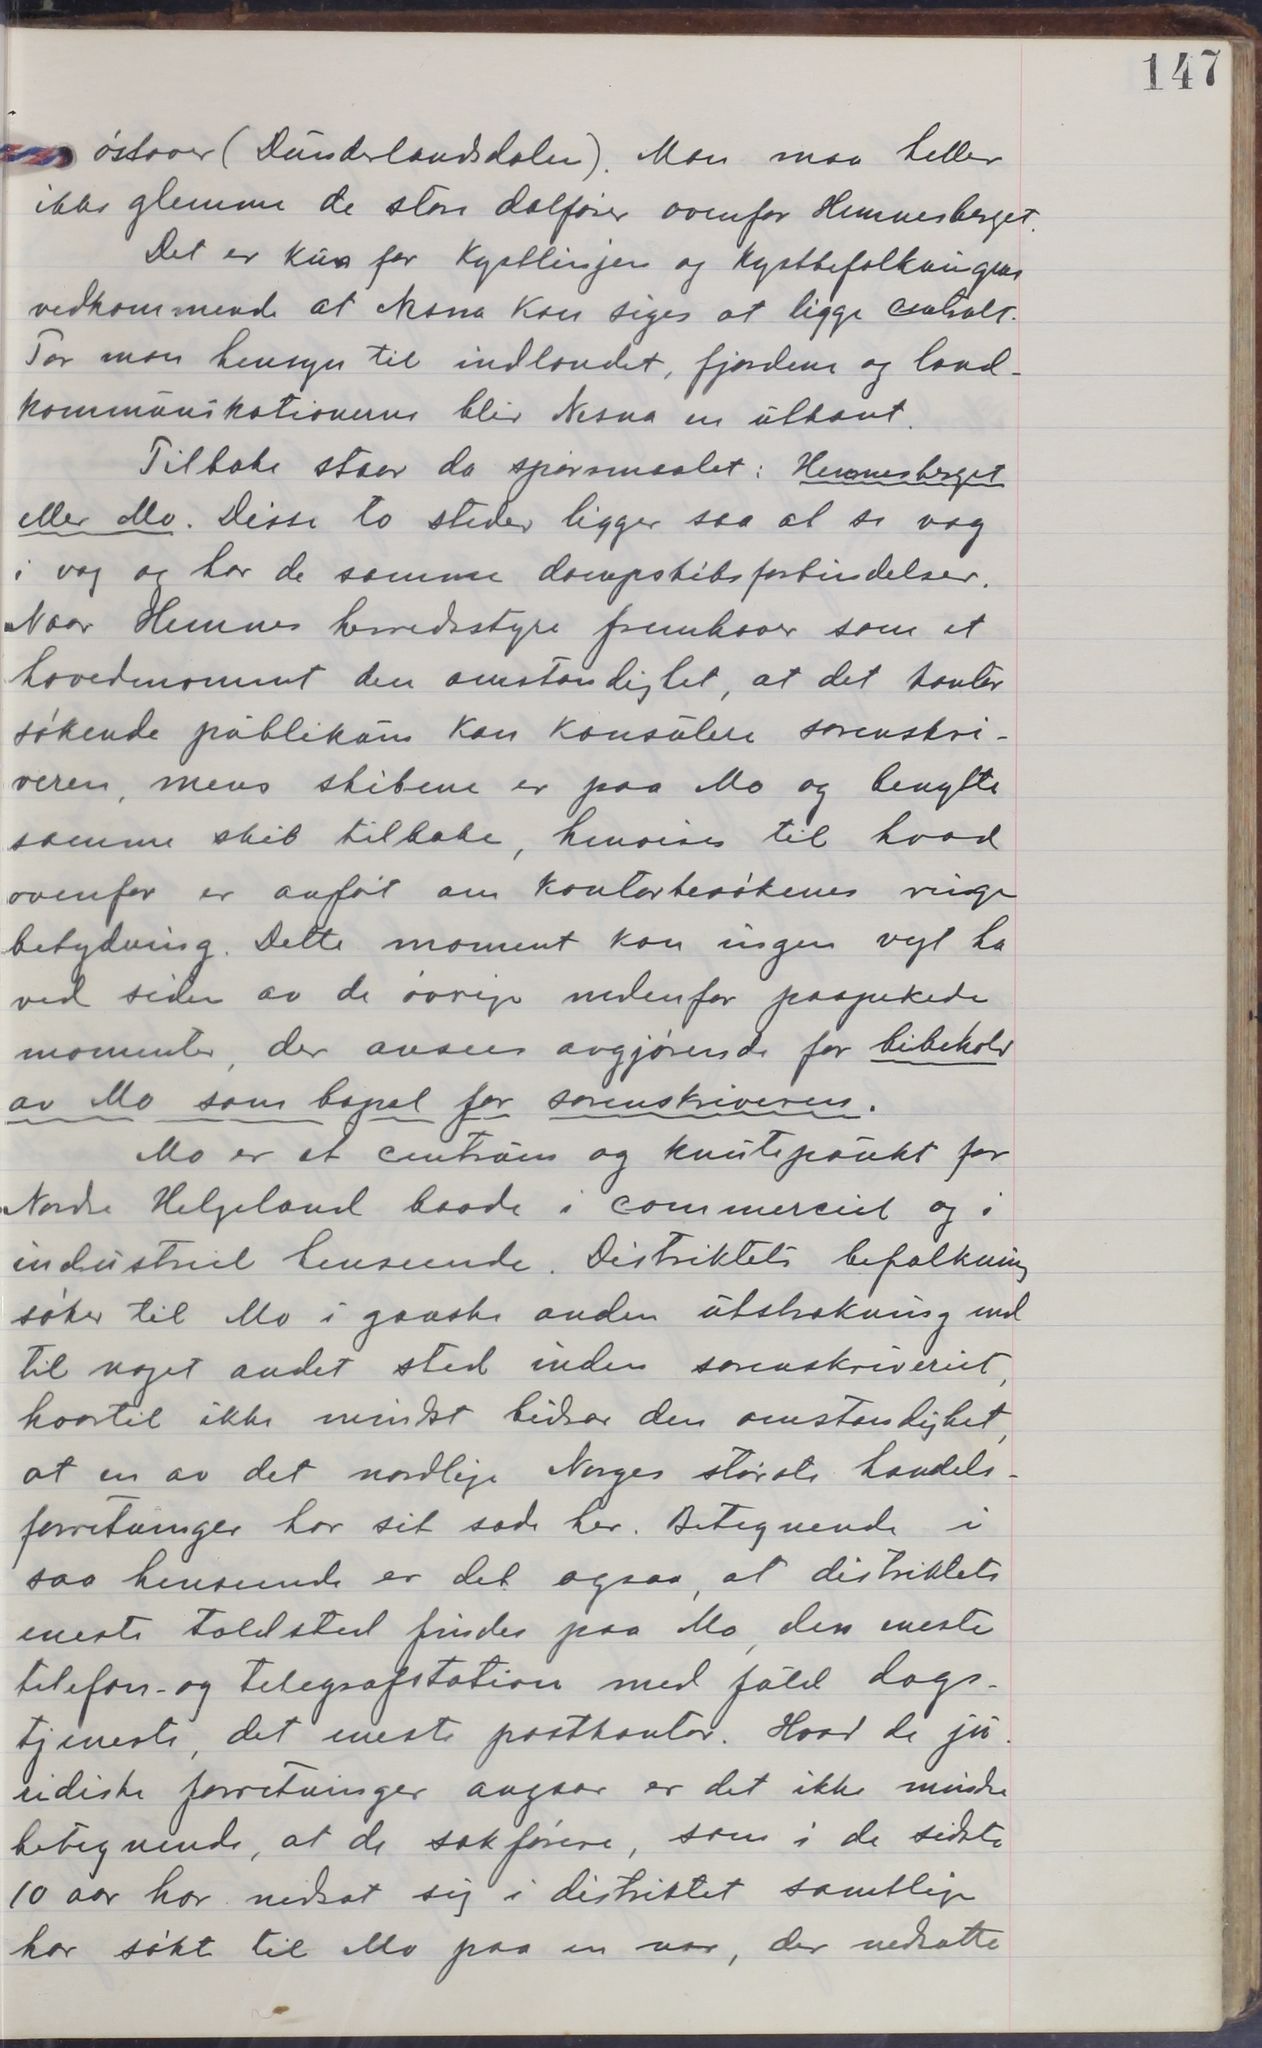 147
østover (Dunderlandsdalen). Man maa heller
ikke glemme de store dalfører ovenfor Hemnesberget.
Det er kun for kystlinjen og kystbefolkningens
vedkommende at Nesna kan siges at ligge centralt.
Tar man hensyn til indlandet, fjordene og land-
kommunikationerne blir Nesna en utkant.
Tilbake staar da spørsmaalet: Hemnesberget
eller Mo. Disse to steder ligger saa at si væg
i væg og har de samme dampskibsforbindelser.
Naar Hemnes herredsstyre fremhæver som et
hovedmoment den omstændighet, at det kontor
søkende publikum kan konsulere sorenskri-
veren, mens skibene er paa Mo og benytte
samme skib tilbake, henvises til hvad
ovenfor er anført om kontorbesøkenes ringe
betydning. Dette moment kan ingen vegt ha
ved siden av de øvrige nedenfor paapekede
momenter, der ansees avgjørende for bibehold
av Mo som bopæl for sorenskriveren.
Mo er et centrum og knutepunkt for
Nordre Helgeland baade i commerciel og i
industriel henseende. Distriktets befolkning
søker til Mo i ganske anden utstrækning end
til noget andet sted inden sorenskriveriet,
hvortil ikke mindst bidrar den omstændighet,
at en av det nordlige Norges største handels-
forretninger har sit sæde her. Betegnende i
saa henseende er det ogsaa, at distriktets
eneste toldsted findes paa Mo, den eneste
telefon- og telegrafstation med fuld dags-
tjeneste, det eneste postkontor. Hvad de ju-
ridiske forretninger angaar er det ikke mindre
betegnende, at de sakførere, som i de sidste
10 aar har nedsat sig i distriktet samtlige
har søkt til Mo paa en nær, der nedsatte